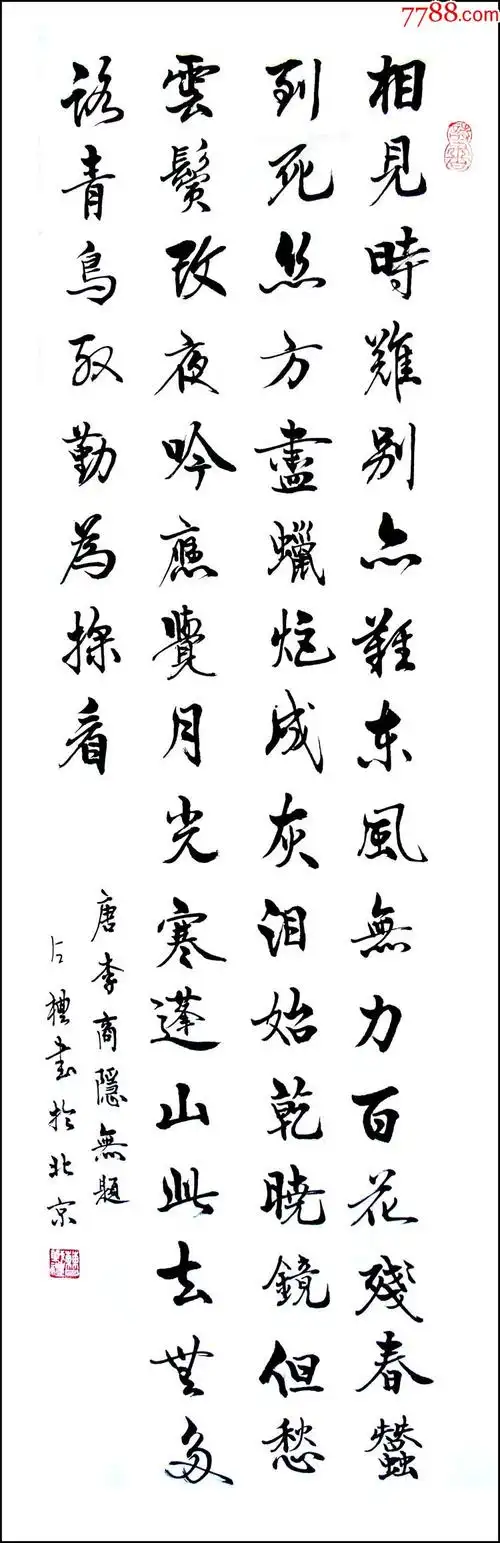 7788.com
相見時難別亦難东風無力百花殘春蠶
到死丝方盡蠟炬成灰泪始乾曉鏡但愁
雲鬢改夜吟應覺月光寒蓬山此去無多
路青鳥殷勤為探看
唐李商隱無題
書於北京